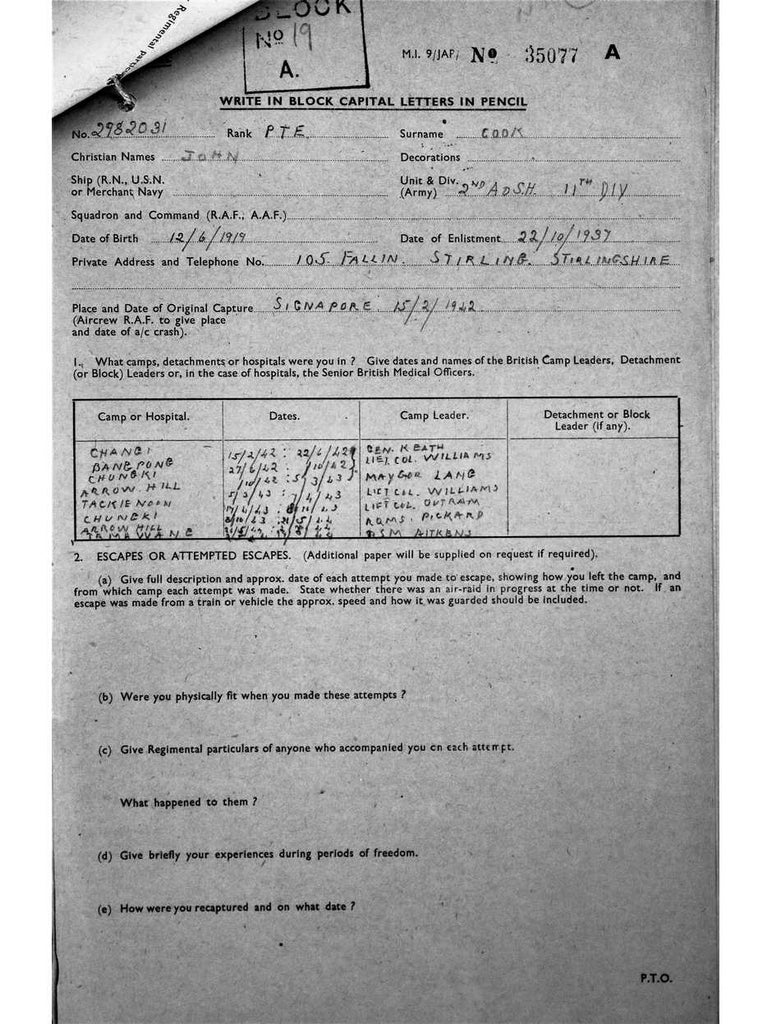 Regimental partic
BLOCK
No 19
A.
M.I. 9/JAP/ No 35077 A
WRITE IN BLOCK CAPITAL LETTERS IN PENCIL
No. 2982031 Rank PTE Surname COOK
Christian Names JOHN Decorations
Ship (R.N., U.S.N. or Merchant Navy Unit & Div. (Army) 2ND A D S.H. 11TH DIV
Squadron and Command (R.A.F., A.A.F.)
Date of Birth 12/6/1919 Date of Enlistment 22/10/1937
Private Address and Telephone No. 105 FALLIN. STIRLING. STIRLINGSHIRE
Place and Date of Original Capture SIGNAPORE 15/2/1942
(Aircrew R.A.F. to give place
and date of a/c crash).
1. What camps, detachments or hospitals were you in ? Give dates and names of the British Camp Leaders, Detachment
(or Block) Leaders or, in the case of hospitals, the Senior British Medical Officers.
Camp or Hospital. Dates. Camp Leader. Detachment or Block
Leader (if any).
CHANGI 15/2/42 : 22/6/42 GEN. KEATH
BANGPONG 27/6/42 : /10/42 LIET. COL. WILLIAMS
CHUNGKI /10/42 : 5/3/43 MAYGOR LANG
ARROW HILL 5/3/43 : /4/43 LIET COL. WILLIAMS
TACKIENOON /4/43 LIET COL. OUTRAM
CHUNGKI RQMS. PICKARD
ARROW HILL
AITKENS
2. ESCAPES OR ATTEMPTED ESCAPES. (Additional paper will be supplied on request if required).
(a) Give full description and approx. date of each attempt you made to escape, showing how you left the camp, and
from which camp each attempt was made. State whether there was an air-raid in progress at the time or not. If an
escape was made from a train or vehicle the approx. speed and how it was guarded should be included.
(b) Were you physically fit when you made these attempts ?
(c) Give Regimental particulars of anyone who accompanied you on each attempt.
What happened to them ?
(d) Give briefly your experiences during periods of freedom.
(e) How were you recaptured and on what date ?
P.T.O.